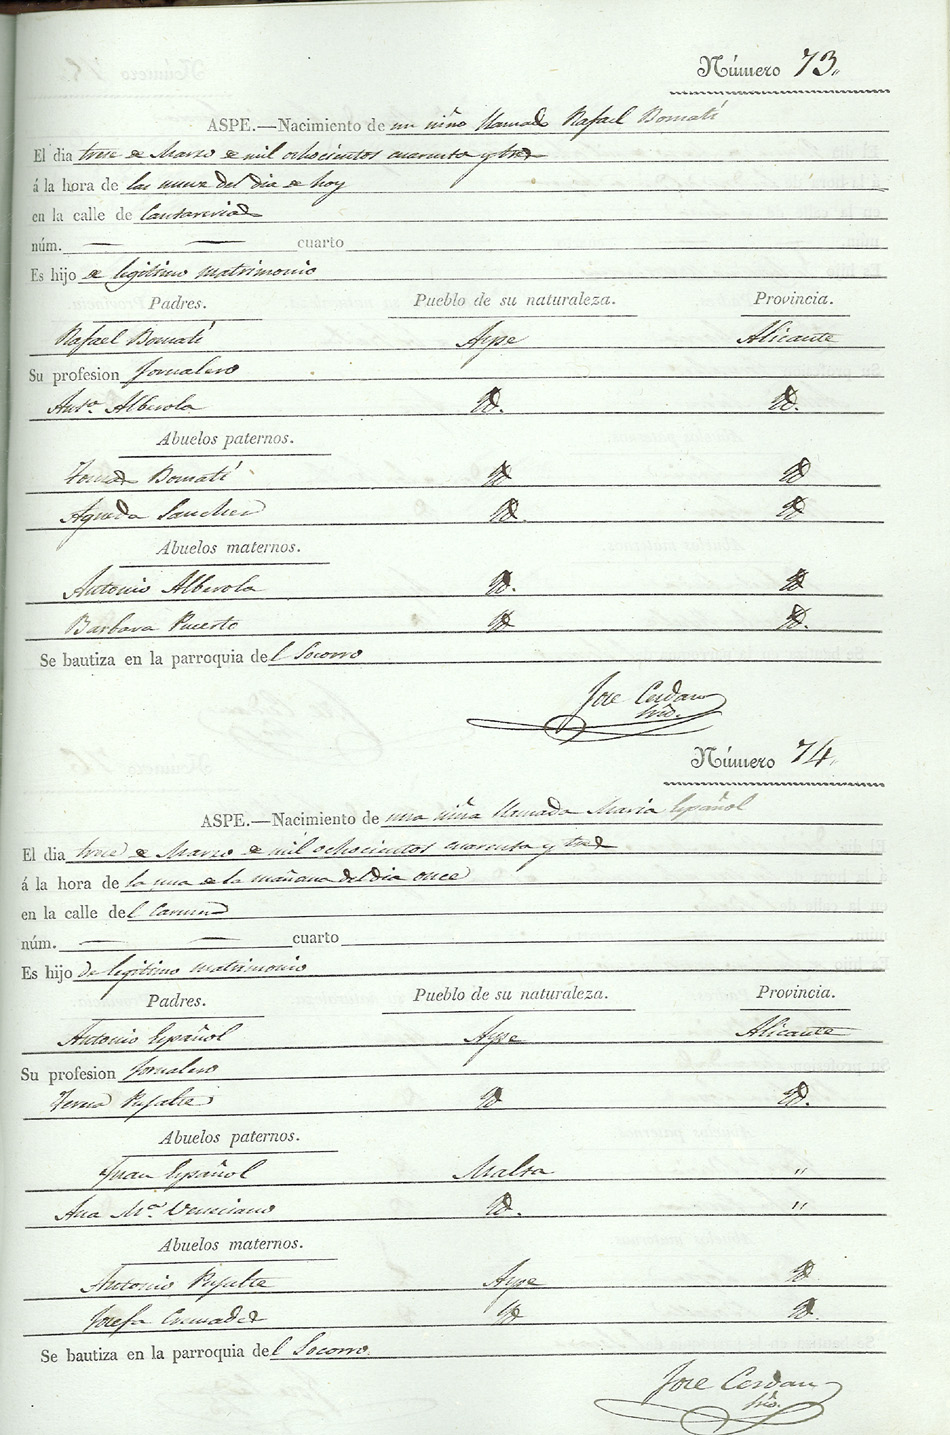 Número 73.
ASPE.—Nacimiento de un niño llamado Rafael Bomatí
El dia trece de Marzo de mil ochocientos cuarenta y tres
á la hora de las nueve del dia de hoy
en la calle de
núm. — — cuarto
Es hijo de legitimo matrimonio
Padres. Pueblo de su naturaleza. Provincia.
Rafael Bomatí Aspe Alicante
Su profesion Jornalero
Antª. Alberola Id. Id.
Abuelos paternos.
Tomas Bomatí Id Id
Agueda Sanchez Id. Id
Abuelos maternos.
Antonio Alberola Id. Id
Barbara Puerto Id Id.
Se bautiza en la parroquia del Socorro
Jose Cerdan
Srio.
Número 74.
ASPE.—Nacimiento de una niña llamada Maria Español
El dia trece de Marzo de mil ochocientos cuarenta y tres
á la hora de la una de la mañana del dia once
en la calle del Carmen
núm. — — cuarto
Es hijo de legitimo matrimonio
Padres. Pueblo de su naturaleza. Provincia.
Antonio Español Aspe Alicante
Su profesion Jornalero
Teresa Id Id.
Abuelos paternos.
Juan Español Malta "
Ana Mª. Id. "
Abuelos maternos.
Antonio Aspe Id
Josefa Cremades Id Id.
Se bautiza en la parroquia del Socorro
Jose Cerdan
Srio.